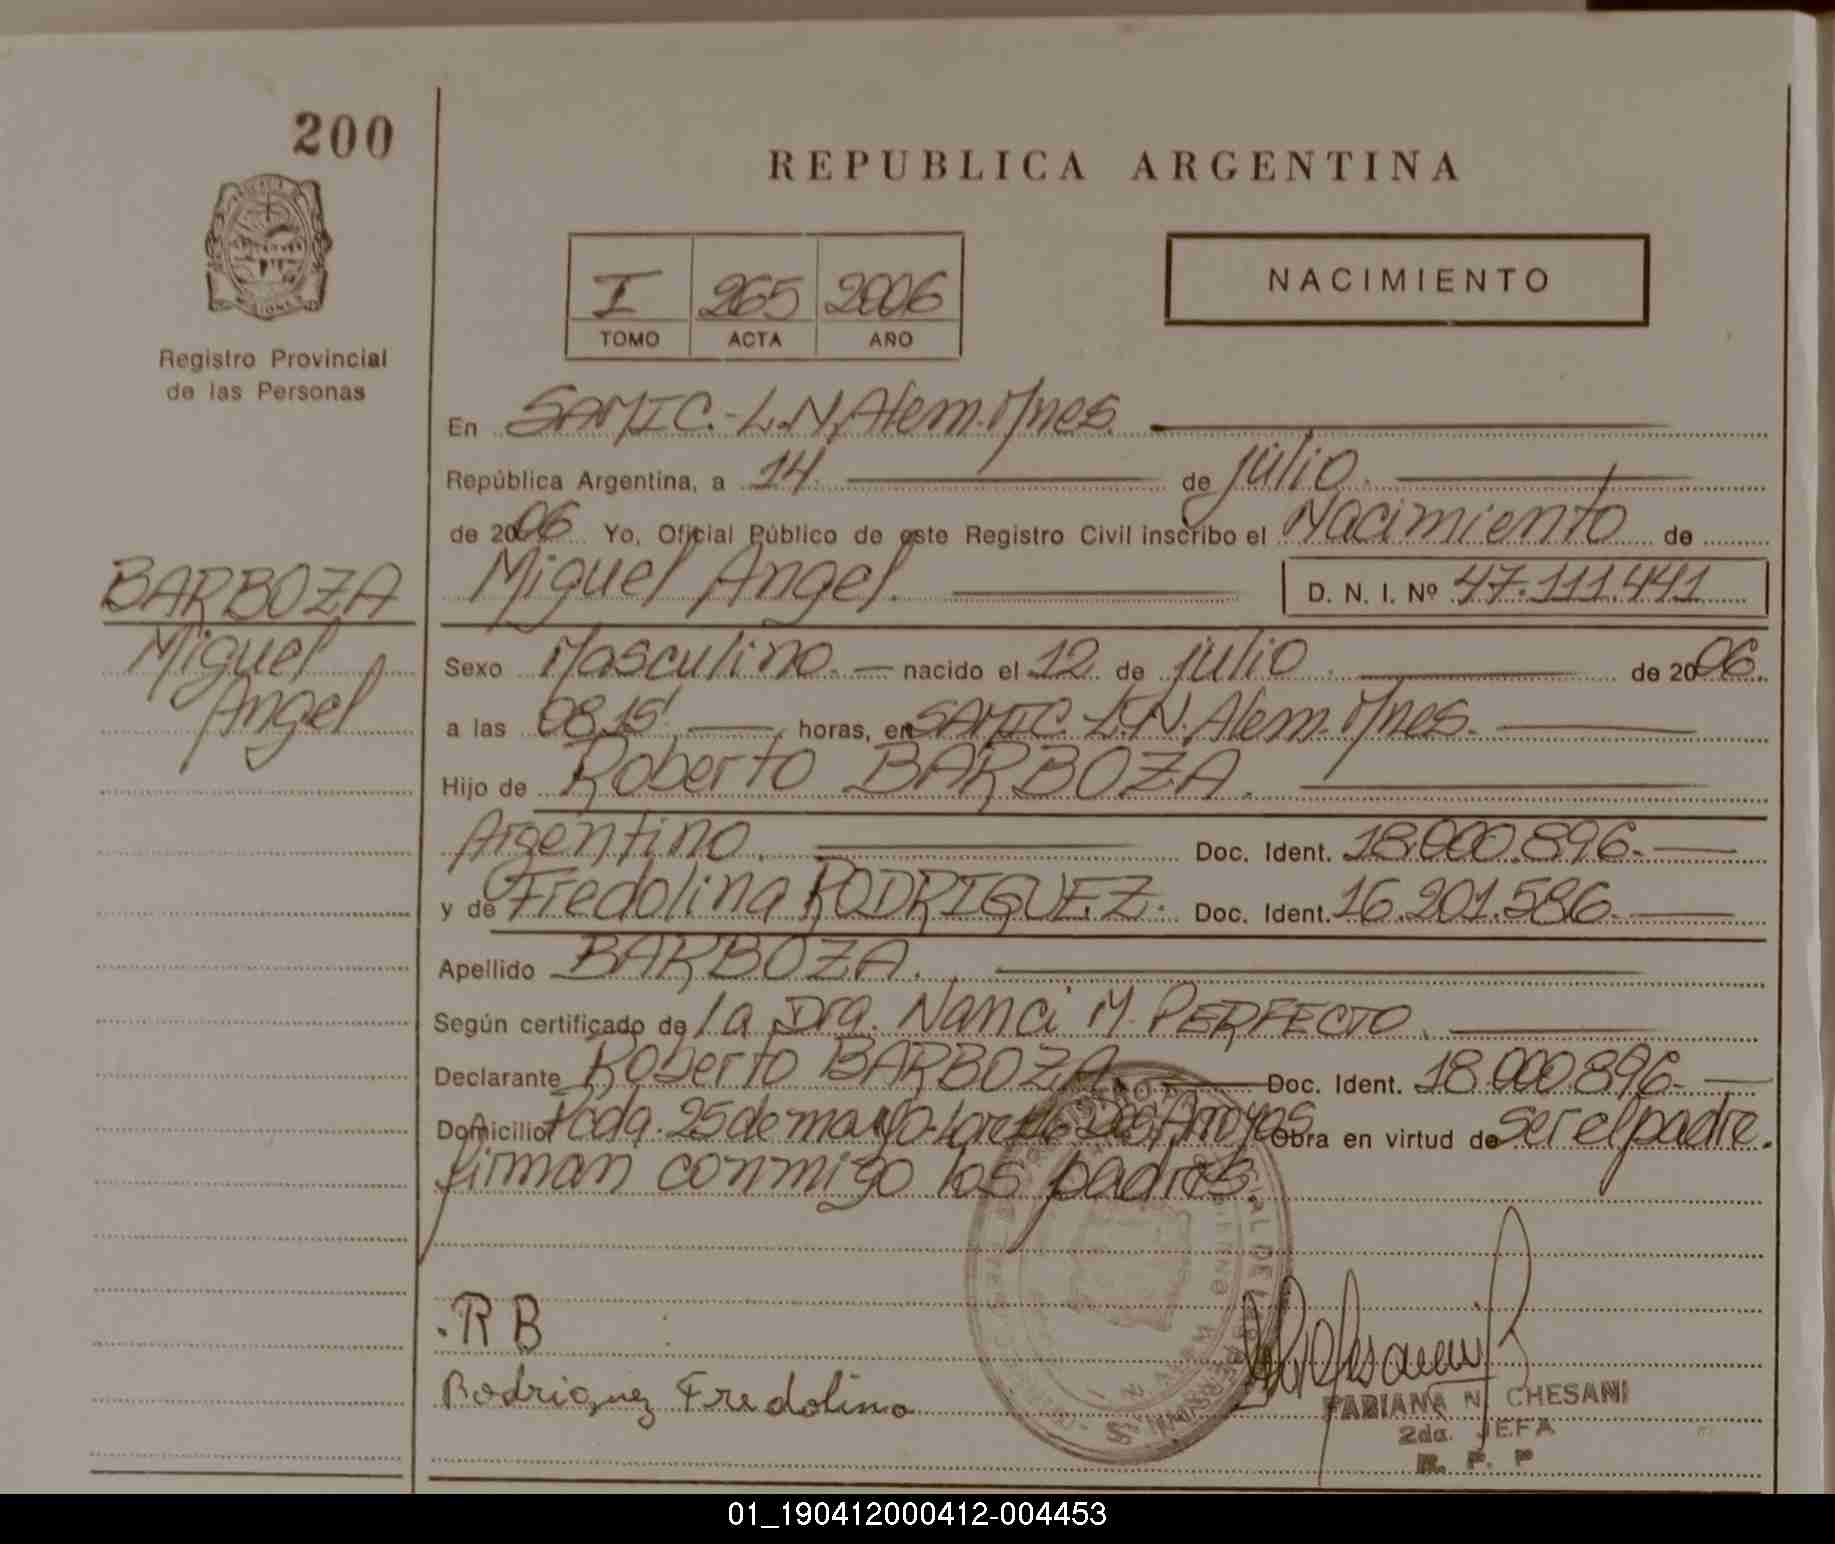 200
REPUBLICA ARGENTINA
I 265 2006
TOMO ACTA AÑO
NACIMIENTO
Registro Provincial
de las Personas
En SAMIC.-L.N.Alem.Mnes.
República Argentina, a 14. de julio.
de 2006 Yo, Oficial Público de este Registro Civil inscribo el Nacimiento de
BARBOZA
Miguel
Angel
Miguel Angel. D. N. I. Nº 47.111.441
Sexo Masculino. nacido el 12 de julio. de 2006.
a las 08,15' horas, en SAMIC. L.N. Alem. Mnes.
Hijo de Roberto BARBOZA.
Argentino. Doc. Ident. 18.000.896.-
y de Fredolina RODRIGUEZ. Doc. Ident. 16.201.586.
Apellido BARBOZA.
Según certificado de la Dra. Nanci M. PERFECTO.
Declarante Roberto BARBOZA Doc. Ident. 18.000896.-
Domicilio Pcda. 25 de mayo. Dos Arroyos Obra en virtud de ser el padre.
firman conmigo los padres.
.R B
Rodriguez Fredolina
FABIANA N. CHESANI
2da. JEFA
R. P. P
01_190412000412-004453